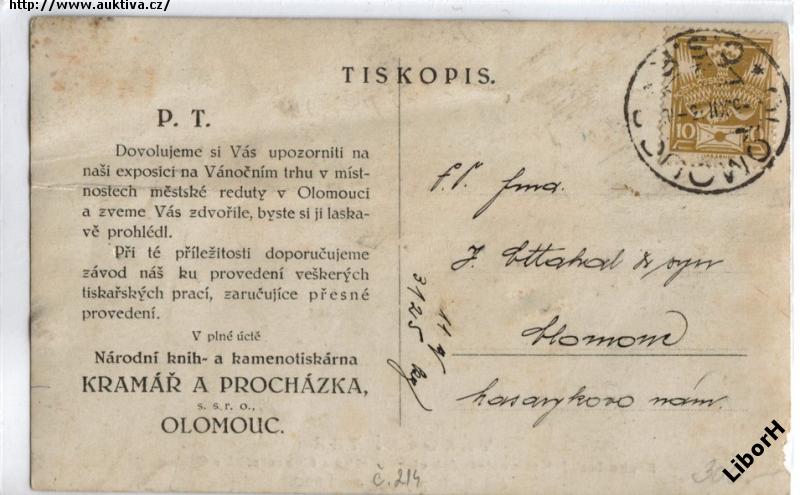 http://www.auktiva.cz/
TISKOPIS.
P. T.
Dovolujeme si Vás upozorniti na
naši exposici na Vánočním trhu v míst-
nostech městské reduty v Olomouci
a zveme Vás zdvořile, byste si ji laska-
vě prohlédl.
Při té příležitosti doporučujeme
závod náš ku provedení veškerých
tiskařských prací, zaručujíce přesné
provedení.
V plné úctě
Národní knih- a kamenotiskárna
KRAMÁŘ A PROCHÁZKA,
s. s r. o.,
OLOMOUC.
10
OLOMOUC
fma.
J. & syn
Olomouc
Masarykovo nám.
3125
č. 214
LiborH